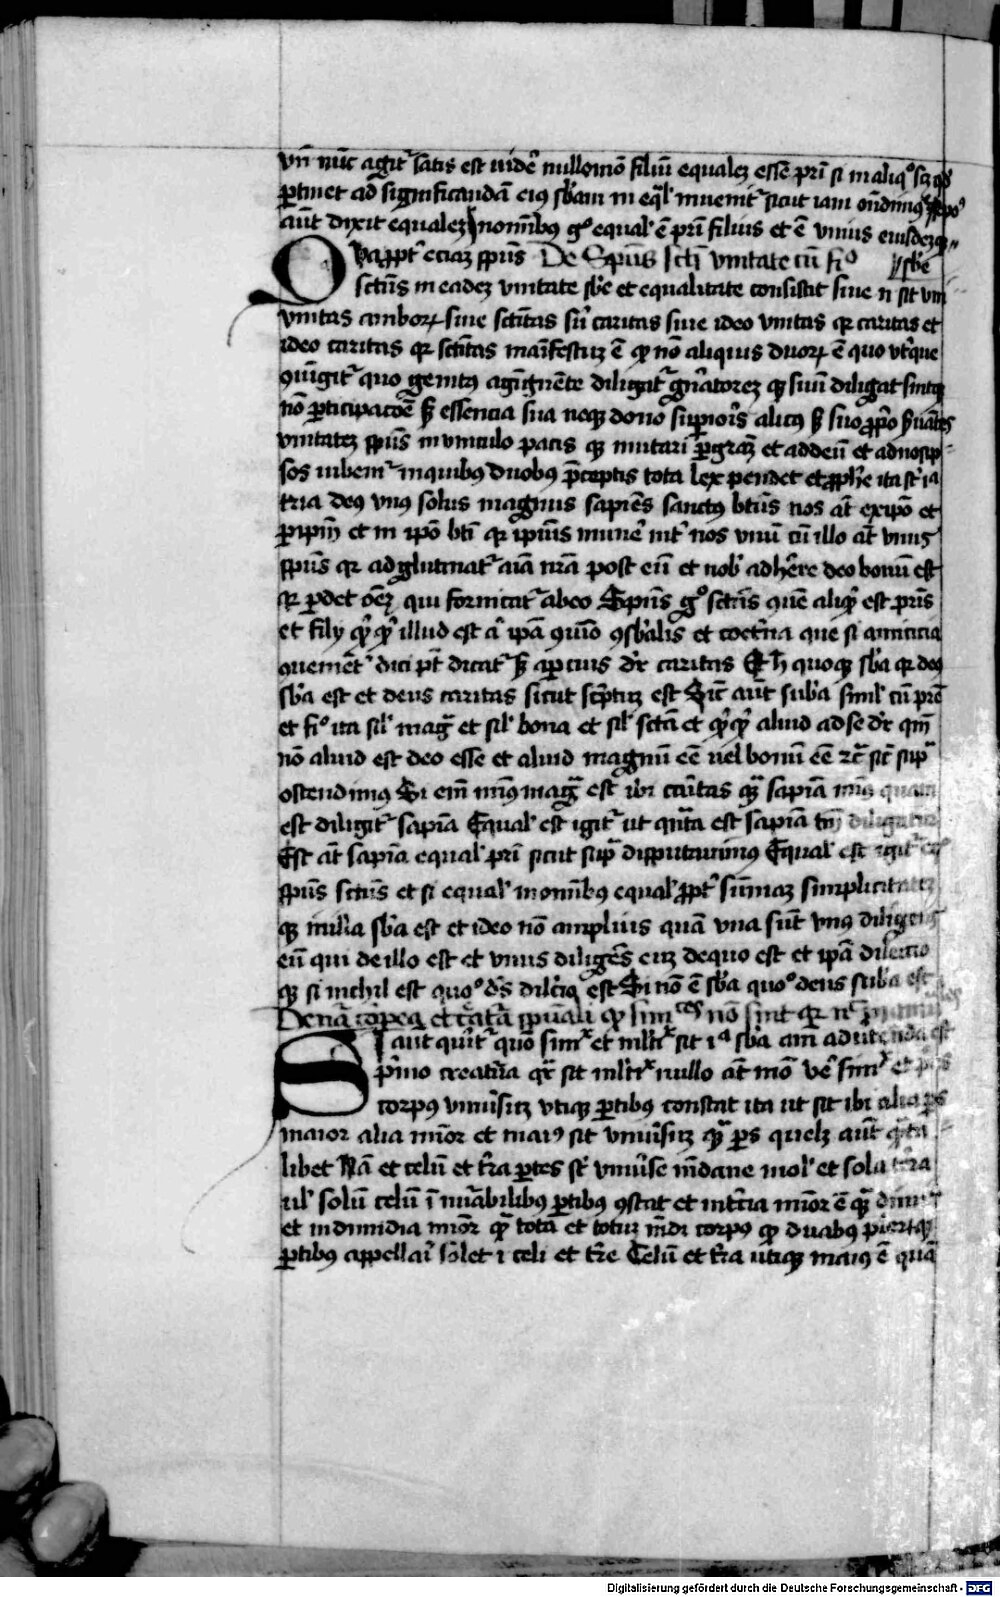 vn̄ nūc agit᷑ satis est uidē nullomō filiū equalez esse pr̄i si in aliqᵒ scz qd
ꝑtinet ad significandā eiꝰ sb̄am in eq̄l' inuenit᷑ sicut iam on̄dimꝰ
aūt dixit equalez noīnibꝰ gᵒ equal' ē pr̄i filius et ē vnius eiusdezqꝫ
sb̄e
Qvapropt᷑ eciaz sp̄us De Spūs sctī vnitate cū fiᵒ
sctūs in eadez vnitate sb̄e et equalitate consistit siue n̄ sit vni
vnitas amborꝝ siue sctītas siū caritas siue ideo vnitas qr caritas et
ideo caritas qr sctītas maīfestuz ē ꝙ nō aliquis duorꝝ ē quo vt̄qꝫ
ꝯiūgit᷑ quo genitꝰ agignēte diligit᷑ gn̄atorez qꝫ suū diligat sintqꝫ
nō ꝑticipacōe ꝫ essencia sua neqꝫ dono suꝑioris alicꝰ ꝫ suo ꝓpo ẜuātes
vnitatez sp̄us in vinculo pacis qꝫ mutari ꝑ graz̄ et addeū et adnosip
sos iubem᷑ inquibꝰ duobꝰ p̄ceptis tota lex pendet et ꝓphē ita st̄ iᵃ
tria deꝰ vnꝰ solus magnus sapiēs sanctꝰ btūs nos at̄ exip̄o et
ꝑ ip̄m et in ip̄o bt̄i qr ip̄iūs munē int᷑ nos vnū cū illo at̄ vnꝰ
sp̄us qr adglutinat᷑ aīa nr̄a post eū et nob' adhērē deo bonū est
qr ꝑdet oēz qui fornicat᷑ abeo Spūs gᵒ sctūs quē aliqd̄ est pr̄is
et filÿ qd̄ qd̄ illud est aͥ ip̄a ꝯuīo ꝯsb̄alis et coet̄na que si amicicia
ꝯuenient᷑ dici pt̄ dicat᷑ ꝫ aꝑcius dr̄ caritas Et h̄ quoqꝫ sb̄a qr deꝰ
sb̄a est et deus caritas sicut sc̄ptuz est Sic̄ aūt sub̄a simil' cū pr̄e
et fiᵒ ita sil' maḡ et sil' bona et sil' sctā et qd̄ qd̄ aliud ad se dr̄ qm̄
nō aliud est deo esse et aliud magnū eē uel bonū eē ꝛc̄ sic̄ supᵃ
ostendimꝰ Si em̄ minꝰ maḡ est ibi caritas qᵃ sapīa minꝰ quam
est diligit᷑ sapīa Equal' est igit᷑ ut qn̄ta est sapīa tm̄ diligatur
Est at̄ sapīa equal' pr̄i sicut supᵃ disputauimꝰ Equal' est igit᷑ eciā
sp̄us sctūs et si equal' in oīnibꝰ equal' ꝓpt᷑ sūmaz simplicitatez
qꝫ inilla sb̄a est et ideo nō amplius quā tria sūt vnꝰ diligens
eū qui de illo est et vnus diligēs euz dequo est et ip̄a dilectio
qꝫ si nichil est quoᵒ ds̄ dilc̄iᵒ est Si nō ē sb̄a quoᵒ deus sub̄a est
De nā corp̄ea et cr̄atā sp̄uali ꝙ simplices nō sint qr
Si aut querit᷑ quō simᵉˣ et ml̄tiˣ sit iᵃ sb̄a am̄ aduertenda est
p̄mo creatūa qr̄ sit ml̄tiˣ nullo at̄ mō vē simᵉˣ et p̄us
corpꝰ vniūsuz vtiqꝫ ꝑtibꝰ constat ita ut sit ibi alia p̄s
maior alia minor et maiꝰ sit vniūsuz qᵃ p̄s quelz aūt qn̄ta
libet Nā et celū et tr̄a ꝑtes st̄ vniūse mūdane mol' et sola terra
ul' solū celū ī nuābilibꝰ ꝑtibꝰ ꝯstat et intc̄ia minor ē qᵃ
et in dimidia minor qᵃ tota et totiꝰ mūdi corpꝰ qd̄ duabꝰ pl̄erūqꝫ
ꝑtibꝰ appellari solet i celi et tr̄e Celū et tr̄a utiqꝫ maiꝰ ē quā
Digitalisierung gefördert durch die Deutsche Forschungsgemeinschaft - DFG